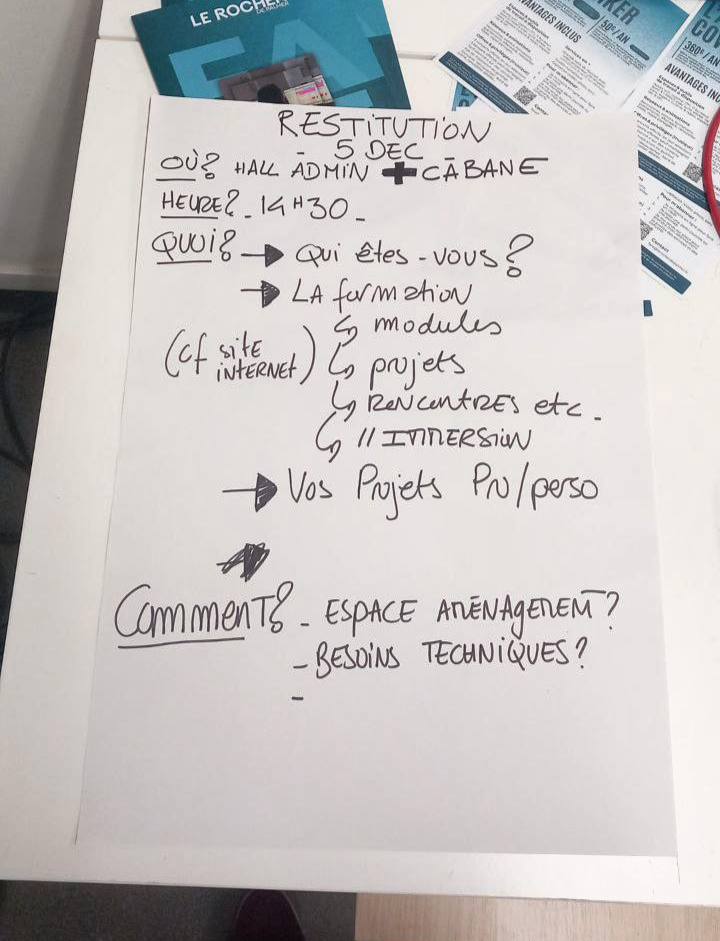 LE ROCHER
DE PALMER
50€/AN
360€/AN
AVANTAGES INCLUS
RESTITUTION
5 DEC
OÙ? HALL ADMIN + CABANE
HEURE? - 14H30 -
QUOI? → Qui êtes-vous?
→ LA formation
↳ modules
(cf site INTERNET) ↳ projets
↳ RENCONTRES etc.
↳ // IMMERSION
→ Vos Projets Pro/perso
Comment? - ESPACE AMÉNAGEMENT?
- BESOINS TECHNIQUES?
-